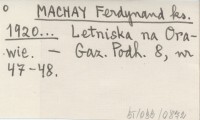 MACHAY Ferdynand ks.
1920... Letniska na Ora-
wie. — Gaz. Podh. 8, nr
47-48.